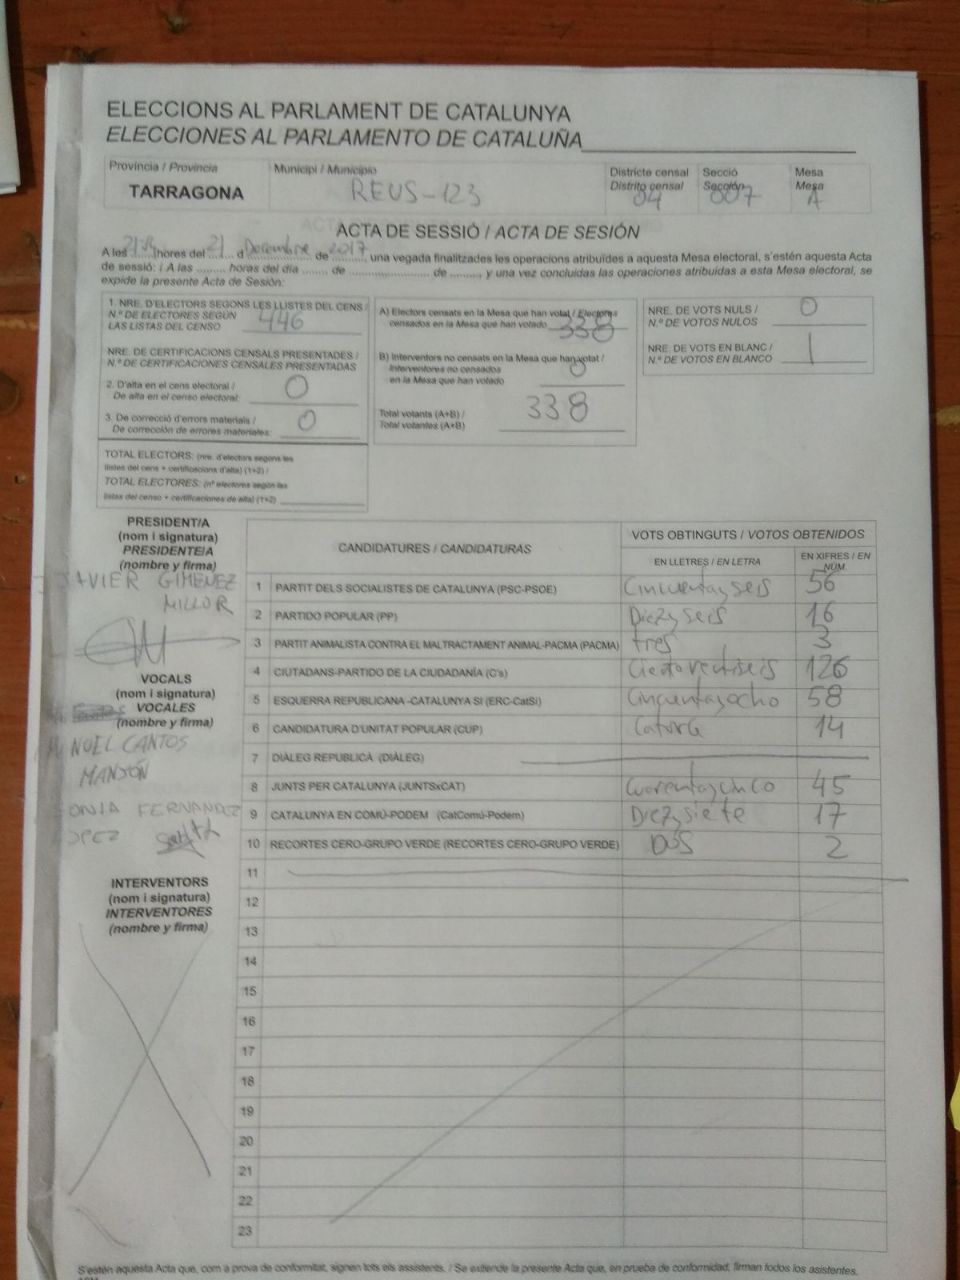 ELECCIONS AL PARLAMENT DE CATALUNYA
ELECCIONES AL PARLAMENTO DE CATALUÑA
Província / Provincia Municipi / Municipio Districte censal Secció Mesa
Distrito censal Sección Mesa
TARRAGONA REUS-123 04 007 A
ACTA DE SESSIÓ / ACTA DE SESIÓN
A les hores del 21 d Decembre de 2017, una vegada finalitzades les operacions atribuïdes a aquesta Mesa electoral, s'estén aquesta Acta
de sessió: / A las ......... horas del día ....... de ....................... de ........, y una vez concluidas las operaciones atribuidas a esta Mesa electoral, se
expide la presente Acta de Sesión:
1. NRE. D'ELECTORS SEGONS LES LLISTES DEL CENS /
N.º DE ELECTORES SEGÚN
LAS LISTAS DEL CENSO 446
NRE. DE CERTIFICACIONS CENSALS PRESENTADES /
N.º DE CERTIFICACIONES CENSALES PRESENTADAS
2. D'alta en el cens electoral /
De alta en el censo electoral: 0
3. De correcció d'errors materials /
De corrección de errores materiales: 0
TOTAL ELECTORS: (nre. d'electors segons les
llistes del cens + certificacions d'alta) (1+2) /
TOTAL ELECTORES: (nº electores según las
listas del censo + certificaciones de alta) (1+2)
A) Electors censats en la Mesa que han votat / Electores
censados en la Mesa que han votado 338
B) Interventors no censats en la Mesa que han votat /
Interventores no censados
en la Mesa que han votado 0
Total votants (A+B) /
Total votantes (A+B) 338
NRE. DE VOTS NULS /
N.º DE VOTOS NULOS 0
NRE. DE VOTS EN BLANC /
N.º DE VOTOS EN BLANCO 1
PRESIDENT/A
(nom i signatura)
PRESIDENTE/A
(nombre y firma)
JAVIER GIMENEZ
MILLOR
VOCALS
(nom i signatura)
VOCALES
(nombre y firma)
NUEL CANTOS
ONIA FERNANDEZ
OPEZ
INTERVENTORS
(nom i signatura)
INTERVENTORES
(nombre y firma)
CANDIDATURES / CANDIDATURAS VOTS OBTINGUTS / VOTOS OBTENIDOS
EN LLETRES / EN LETRA EN XIFRES / EN NÚM.
1 PARTIT DELS SOCIALISTES DE CATALUNYA (PSC-PSOE) Cincuentayseis 56
2 PARTIDO POPULAR (PP) Diezyseis 16
3 PARTIT ANIMALISTA CONTRA EL MALTRACTAMENT ANIMAL-PACMA (PACMA) tres 3
4 CIUTADANS-PARTIDO DE LA CIUDADANÍA (C's) 126
5 ESQUERRA REPUBLICANA -CATALUNYA SÍ (ERC-CatSí) Cincuentayocho 58
6 CANDIDATURA D'UNITAT POPULAR (CUP) Catorce 14
7 DIÀLEG REPUBLICÀ (DIÀLEG)
8 JUNTS PER CATALUNYA (JUNTSxCAT) Cuarentaycinco 45
9 CATALUNYA EN COMÚ-PODEM (CatComú-Podem) Diezysiete 17
10 RECORTES CERO-GRUPO VERDE (RECORTES CERO-GRUPO VERDE) DOS 2
11
12
13
14
15
16
17
18
19
20
21
22
23
S'estén aquesta Acta que, com a prova de conformitat, signen tots els assistents. / Se extiende la presente Acta que, en prueba de conformidad, firman todos los asistentes.